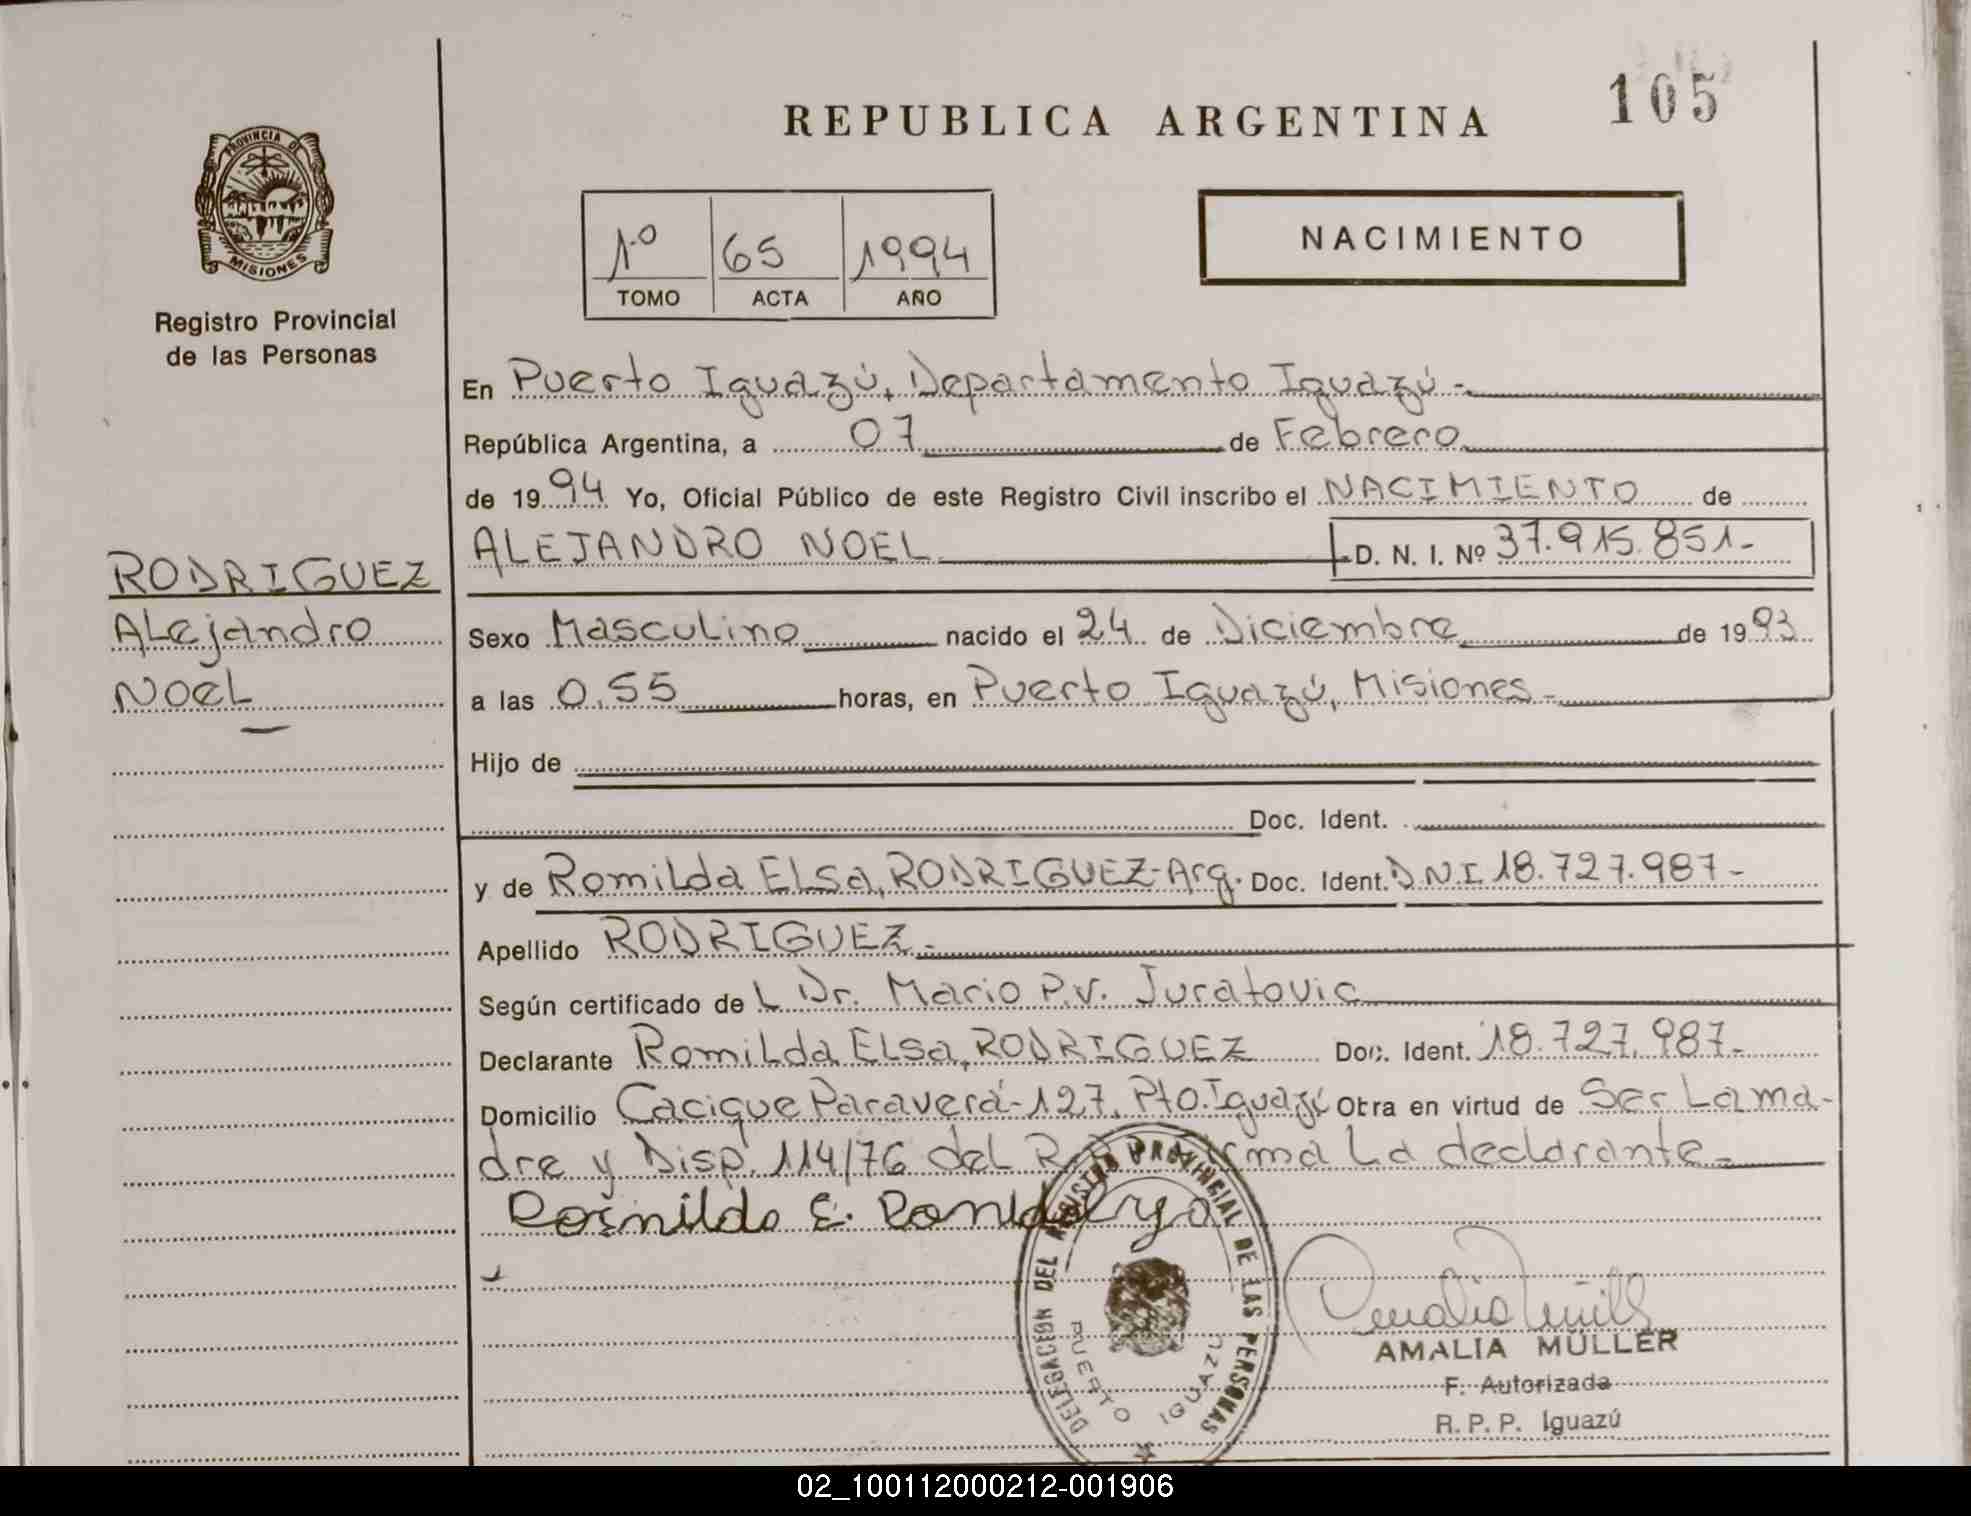 105
REPUBLICA ARGENTINA
PROVINCIA DE
MISIONES
Registro Provincial
de las Personas
1º 65 1994
TOMO ACTA AÑO
NACIMIENTO
En Puerto Iguazú, Departamento Iguazú-
República Argentina, a 07 de Febrero
de 1994 Yo, Oficial Público de este Registro Civil inscribo el NACIMIENTO de
ALEJANDRO NOEL D. N. I. Nº 37.915.851-
RODRIGUEZ
Alejandro
Noel
Sexo Masculino nacido el 24 de Diciembre de 1993
a las 0.55 horas, en Puerto Iguazú, Misiones-
Hijo de
Doc. Ident.
y de Romilda Elsa, RODRIGUEZ-Arg. Doc. Ident. D.N.I. 18.727.987-
Apellido RODRIGUEZ-
Según certificado de L Dr. Mario P.V. Juratovic
Declarante Romilda Elsa, RODRIGUEZ Doc. Ident. 18.727.987-
Domicilio Cacique Paraverá-127, Pto. Iguazú Obra en virtud de Ser La ma-
dre y Disp. 114/76 del La declarante-
DELEGACION DEL REGISTRO PROVINCIAL DE LAS PERSONAS
PUERTO IGUAZU
AMALIA MÜLLER
F. Autorizada
R. P. P. Iguazú
02_100112000212-001906